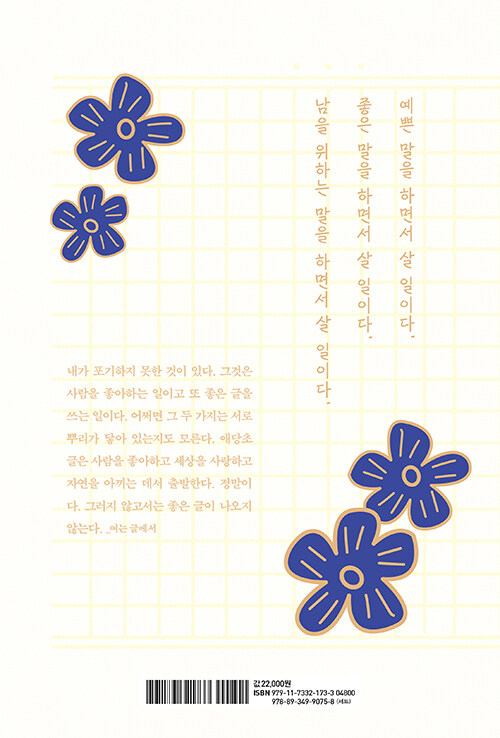 예쁜 말을 하면서 살 일이다.
좋은 말을 하면서 살 일이다.
남을 위하는 말을 하면서 살 일이다.
내가 포기하지 못한 것이 있다. 그것은
사람을 좋아하는 일이고 또 좋은 글을
쓰는 일이다. 어쩌면 그 두 가지는 서로
뿌리가 닿아 있는지도 모른다. 애당초
글은 사람을 좋아하고 세상을 사랑하고
자연을 아끼는 데서 출발한다. 정말이
다. 그러지 않고서는 좋은 글이 나오지
않는다. _여는 글에서
값 22,000원
ISBN 979-11-7332-173-3 04800
978-89-349-9075-8 (세트)